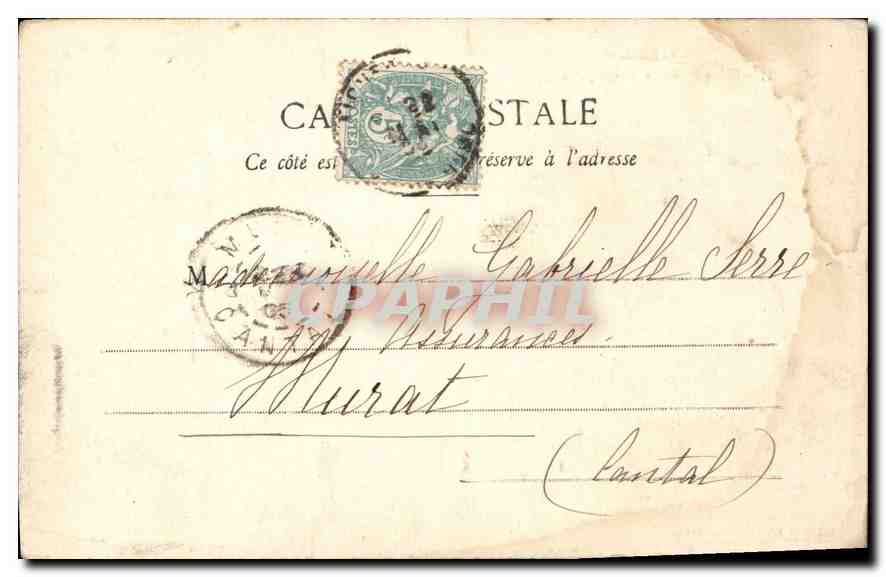 CA STALE
Ce côté est réserve à l'adresse
Mademoiselle Gabrielle Serre
Assurances
Murat
(Cantal)
CPAPHIL